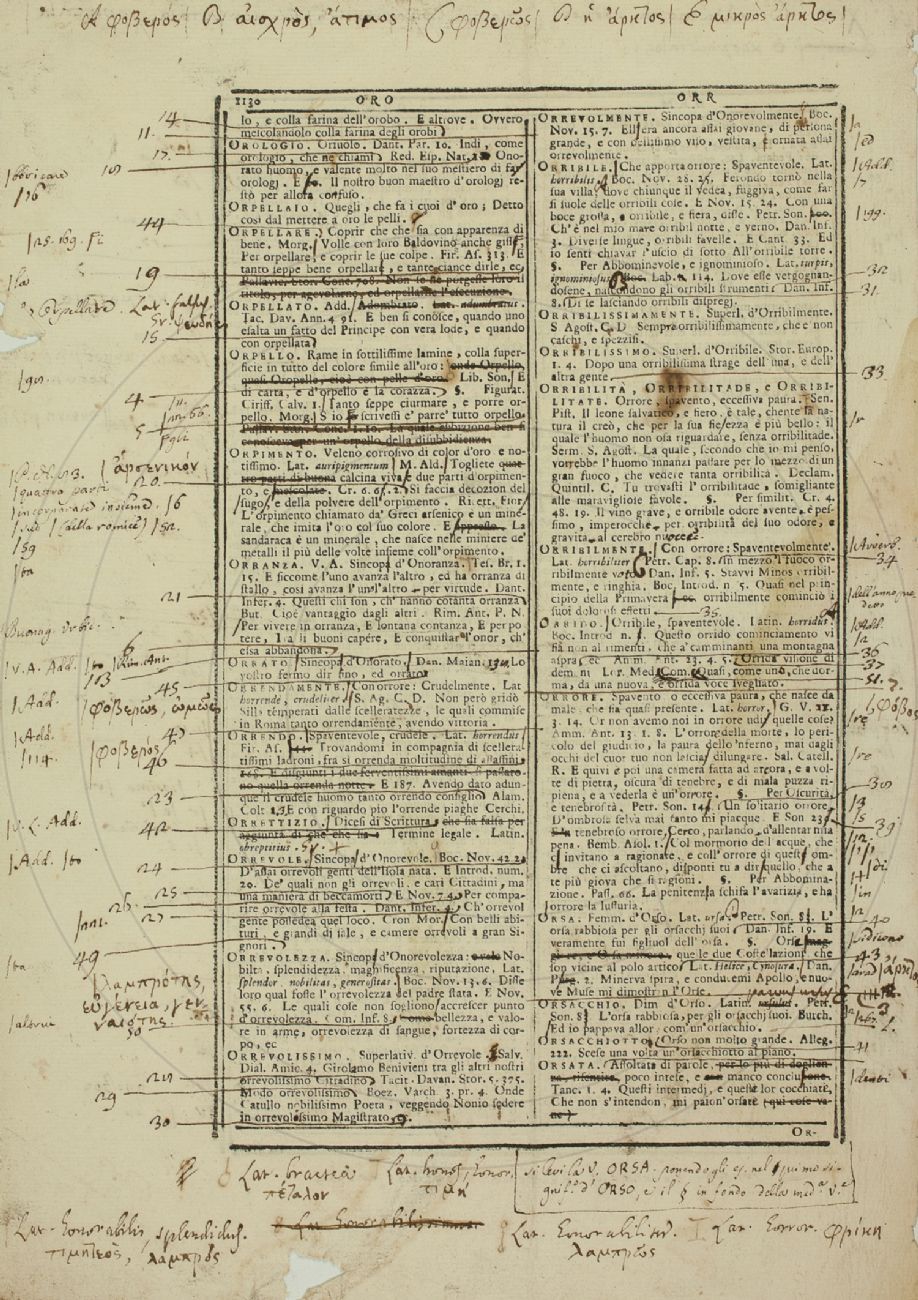 Α φοβερός Β αἰσχρὸς, ἄτιμος C φοβερῶς D ἡ ἄρκτος E μικρὸς ἄρκτος
1130 ORO ORR
lo, e colla farina dell'orobo. E altrove. Ovvero
mescolandolo colla farina degli orobi
OROLOGIO. Oriuolo. Dant. Par. 10. Indi, come
orologio, che ne chiami Red. Esp. Nat. Ono-
rato huomo, e valente molto nel suo mestiero di far
orologj. E Il nostro buon maestro d'orologj re-
stò per allora confuso.
ORPELLAIO. Quegli, che fa i cuoi d'oro; Detto
così dal mettere a oro le pelli.
ORPELLARE. Coprir che che sia con apparenza di
bene. Morg. Volle con loro Baldovino anche gisse,
Per orpellare, e coprir le sue colpe. Fir. As. 313. E
tanto seppe bene orpellare, e tante ciance dirle, ec.
Pallavic. Stor. Conc. 708. Non se ne porgesse loro il
titolo, per agevolarne, ed orpellarne l'esecuzione.
ORPELLATO. Add. Adombrato. Lat. adumbratus.
Tac. Dav. Ann. 4. 91. E ben si conosce, quando uno
esalta un fatto del Principe con vera lode, e quando
con orpellata
ORPELLO. Rame in sottilissime lamine, colla super-
ficie in tutto del colore simile all'oro: onde Orpello,
quasi Oropelle, cioè con pelle d'oro. Lib. Son. E
di carta, e d'orpello è la corazza. §. Figurat.
Ciriff. Calv. 1. Tanto seppe ciurmare, e porre or-
pello. Morg. S'io scrivessi e' parre' tutto orpello.
Pallavi. Stor. Conc. 1. 10. La quale esibizione ben si
conosceva per un'orpello della disubbidienza.
ORPIMENTO. Veleno corrosivo di color d'oro e no-
tissimo. Lat. auripigmentum. M. Ald. Togliete quat-
tro parti di buona calcina viva e due parti d'orpimen-
to, e mescolate. Cr. 6. 6. 2. Si faccia decozion del
sugo, e della polvere dell'orpimento. Ricett. Fior.
L'orpimento chiamato da' Greci arsenico è un mine-
rale, che imita l'oro col suo colore. E appresso. La
sandaraca è un minerale, che nasce nelle miniere de'
metalli il più delle volte insieme coll'orpimento.
ORRANZA. V. A. Sincopa d'Onoranza. Tes. Br. 1.
15. E siccome l'uno avanza l'altro, ed ha orranza di
stallo, così avanza l'uno l'altro per virtude. Dant.
Infer. 4. Questi chi son, ch'hanno cotanta orranza
But. Cioè vantaggio dagli altri. Rim. Ant. P. N.
Per vivere in orranza, E lontana contanza, E per po-
tere, Tra li buoni capére, E conquistar l'onor, ch'
essa abbandona.
ORRATO. Sincopa d'Onorato. Dan. Maian. Lo
vostro fermo dir fino, ed orrato
ORRENDAMENTE. Con orrore: Crudelmente. Lat
horrende, crudeliter. S. Ag. C. D. Non però gridò
Silla temperati dalle scelleratezze, le quali commise
in Roma tanto orrendamente, avendo vittoria.
ORRENDO. Spaventevole, crudele. Lat. horrendus.
Fir. As. Trovandomi in compagnia di scellera-
tissimi ladroni, fra si orrenda moltitudine di assassini.
168. E disgiunti i due ferventissimi amanti, si passaro-
no quella orrenda notte. E 187. Avendo dato adun-
que il crudele huomo tanto orrendo consiglio. Alam.
Colt. 1. 3. E con riguardo più l'orrende piaghe Cerchi.
ORRETTIZIO. Dicesi di Scrittura, che sia falsa per
aggiunta di che che sia. Termine legale. Latin.
obreptitius.
ORREVOLE. Sincopa d'Onorevole. Boc. Nov. 42. 2.
D'assai orrevoli genti dell'Isola nata. E Introd. num.
20. De' quali non gli orrevoli, e cari Cittadini, ma
una maniera di beccamorti. E Nov. 74. Per compa-
rire orrevole alla festa. Dant. Infer. 4. Ch'orrevol
gente possedea quel loco. Cron Mor. Con belli abi-
turi, e grandi di sale, e camere orrevoli a gran Si-
gnori.
ORREVOLEZZA. Sincopa d'Onorevolezza: ovvero No-
biltà, splendidezza, magnificenza, riputazione, Lat.
splendor, nobilitas, generositas. Boc. Nov. 13. 6. Disse
loro qual fosse l'orrevolezza del padre stata. E Nov.
55. 6. Le quali cose non sogliono accrescer punto
d'orrevolezza. Com. Inf. 8. come bellezza, e valo-
re in arme, orrevolezza di sangue, fortezza di cor-
po, ec
ORREVOLISSIMO. Superlativ. d'Orrevole. Salv.
Dial. Amic. 4. Girolamo Benivieni tra gli altri nostri
orrevolissimo Cittadino. Tacit. Davan. Stor. 5. 375.
Modo orrevolissimo. Boez. Varch. 3. pr. 4. Onde
Catullo nobilissimo Poeta, veggendo Nonio sedere
in orrevolissimo Magistrato.
ORREVOLMENTE. Sincopa d'Onorevolmente. Boc.
Nov. 15. 7. Ell'era ancora assai giovane, di persona
grande, e con bellissimo viso, vestita, e ornata assai
orrevolmente.
ORRIBILE. Che apporta orrore: Spaventevole. Lat.
horribilis. Boc. Nov. 28. 25. Ferondo tornò nella
sua villa, dove chiunque il vedea, fuggiva, come far
si suole delle orribili cose. E Nov. 15. 24. Con una
boce grossa, e orribile, e fiera, disse. Petr. Son.
Ch'è nel mio mare orribil notte, e verno. Dan. Inf.
3. Diverse lingue, orribili favelle. E Cant. 33. Ed
io senti chiavar l'uscio di sotto All'orribile torre.
§. Per Abbominevole, e ignominioso. Lat. turpis,
ignominiosus. Boc. Lab. n 114. Dove esse vergognan-
dosene, nascondono gli orribili strumenti. Dan. Inf.
8. Di se lasciando orribili dispregj.
ORRIBILISSIMAMENTE. Superl. d'Orribilmente.
S Agost. C. D Sempre orribilissimamente, che e' non
caschi, e spezzisi.
ORRIBILISSIMO. Superl. d'Orribile. Stor. Europ.
1. 4. Dopo una orribilissima strage dell'una, e dell'
altra gente.
ORRIBILITÀ, ORRIBILITADE, e ORRIBI-
LITATE. Orrore, spavento, eccessiva paura. Sen.
Pist. Il leone salvatico, e fiero, è tale, chente la na-
tura il creò, che per la sua fierezza è più bello: il
quale l'huomo non osa riguardare, senza orribilitade.
Serm. S. Agost. La quale, secondo che io mi penso,
vorrebbe l'huomo innanzi passare per lo mezzo di un
gran fuoco, che vedere tanta orribilità. Declam.
Quintil. C. Tu trovasti l'orribilitade, somigliante
alle maravigliose favole. §. Per similit. Cr. 4.
48. 19. Il vino grave, e orribile odore avente, è pes-
simo, imperocchè, per orribilità del suo odore, e
gravità, al cerebro nuoce.
ORRIBILMENTE. Con orrore: Spaventevolmente.
Lat. horribiliter. Petr. Cap. 8. In mezzo 'l fuoco or-
ribilmente voto. Dan. Inf. 5. Stavvi Minos orribil-
mente, e ringhia. Boc. Introd. n 5. Quasi nel prin-
cipio della Primavera orribilmente cominciò i
suoi dolorosi effetti.
ORRIDO. Orribile, spaventevole. Latin. horridus.
Boc. Introd n. Questo orrido cominciamento vi
fia non altrimenti, che a' camminanti una montagna
aspra, ec. Amm. Ant. 23. 4. 5. Orrida visione di
demonj. Lor. Med. Com. Quasi, come uno, che dor-
ma, da una nuova, e orrida voce svegliato.
ORRORE. Spavento o eccessiva paura, che nasce da
male, che sia quasi presente. Lat. horror. G. V. 11.
3. 14. Or non avemo noi in orrore udir quelle cose?
Amm. Ant. 13. 1. 8. L'orror della morte, lo peri-
colo del giudicio, la paura dello 'nferno, mai dagli
occhi del cuor tuo non lasciar dilungare. Sal. Catell.
R. E quivi è poi una camera fatta ad arcora, e a vol-
te di pietra, oscura di tenebre, e di mala puzza ri-
piena, e a vederla è un'orrore. §. Per Oscurità,
e tenebrosità. Petr. Son. 14. Un solitario orrore
D'ombrosa selva mai tanto mi piacque. E Son 23.
tenebroso orrore, Cerco, parlando, d'allentar mia
pena. Bemb. Asol. 1. Col mormorio dell'acque, che
c'invitano a ragionare, e coll'orrore di queste om-
bre che ci ascoltano, disponti tu a dir quello, che a
te più giova che si ragioni. §. Per Abbomina-
zione. Pass. 66. La penitenza schifa l'avarizia, e ha
orrore la lussuria.
ORSA. Femm. d'Orso. Lat. ursa. Petr. Son. 8. L'
orsa rabbiosa per gli orsacchj suoi. Dan. Inf. 19. E
veramente fui figliuol dell'orsa. §. Orsa mag-
giore, e Orsa minore, quelle due Costellazioni, che
son vicine al polo artico. Lat. Helice, Cynosura. Dan.
Par. 2. Minerva spira, e conducemi Apollo, e nuo-
ve Muse mi dimostran l'Orse.
ORSACCHIO. Dim d'Orso. Latin. ursulus. Petr.
Son. 8. L'orsa rabbiosa, per gli orsacchj suoi. Burch.
Ed io pappava allor, com'un'orsacchio.
ORSACCHIOTTO. Orso non molto grande. Alleg.
222. Scese una volta un'orsacchiotto al piano.
ORSATA. Affoltata di parole, per lo più di doglien-
za, risentita, poco intele, e manco conclusione.
Tanc. 1. 4. Questi intermedj, e queste lor cocchiate,
Che non s'intendon, mi paion'orsate (qui cose va-
ne)
OR-
14
11.
17.
44
19
15
4
5
20
21
45
46
23
42
24
25
26
27
49
50
29
30
32
31
33
34
35
36
37
40
43
41
V. A. Add.
Add.
φοβερῶς, ὠμῶς
φοβερός
ἀρσενικόν
λαμπρότης,
εὐγένεια, γεν-
ναιότης.
Lat. bractea
πέταλον
Lat. honos, honor.
τιμή
si levi la V. ORSA. ponendo gli es. nel primo si-
gnif.º d'ORSO, e il § in fondo della med.ª V.ª
Lat. honorabilis, splendidus.
τιμητέος, λαμπρός
Lat. honorabiliter.
λαμπρῶς
Lat. horror. φρίκη